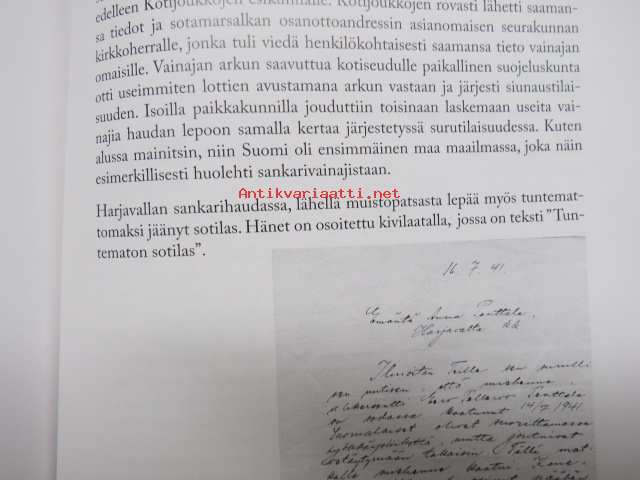 edelleen Kotijoukkojen esikunnalle. Kotijoukkojen rovasti lähetti saaman-
sa tiedot ja sotamarsalkan osanottoandressin asianomaisen seurakunnan
kirkkoherralle, jonka tuli viedä henkilökohtaisesti saamansa tieto vainajan
omaisille. Vainajan arkun saavuttua kotiseudulle paikallinen suojeluskunta
otti useimmiten lottien avustamana arkun vastaan ja järjesti siunaustilai-
suuden. Isoilla paikkakunnilla jouduttiin toisinaan laskemaan useita vai-
najia haudan lepoon samalla kertaa järjestetyssä surutilaisuudessa. Kuten
alussa mainitsin, niin Suomi oli ensimmäinen maa maailmassa, joka näin
esimerkillisesti huolehti sankarivainajistaan.
Antikvariaatti.net
Harjavallan sankarihaudassa, lähellä muistopatsasta lepää myös tuntemat-
tomaksi jäänyt sotilas. Hänet on osoitettu kivilaatalla, jossa on teksti ”Tun-
tematon sotilas”.
16.7.41.
Emäntä Anna Penttala.
Harjavalta
Ilmoitan Teille sen surulli
sen uutisen, että miehenne,
Penttala
on sodassa kaatunut 14/7 1941
Suomalaiset olivat suorittamassa
mutta joutuivat
vetäytymään takaisin. Tällä mat-
kalla miehenne kaatui.